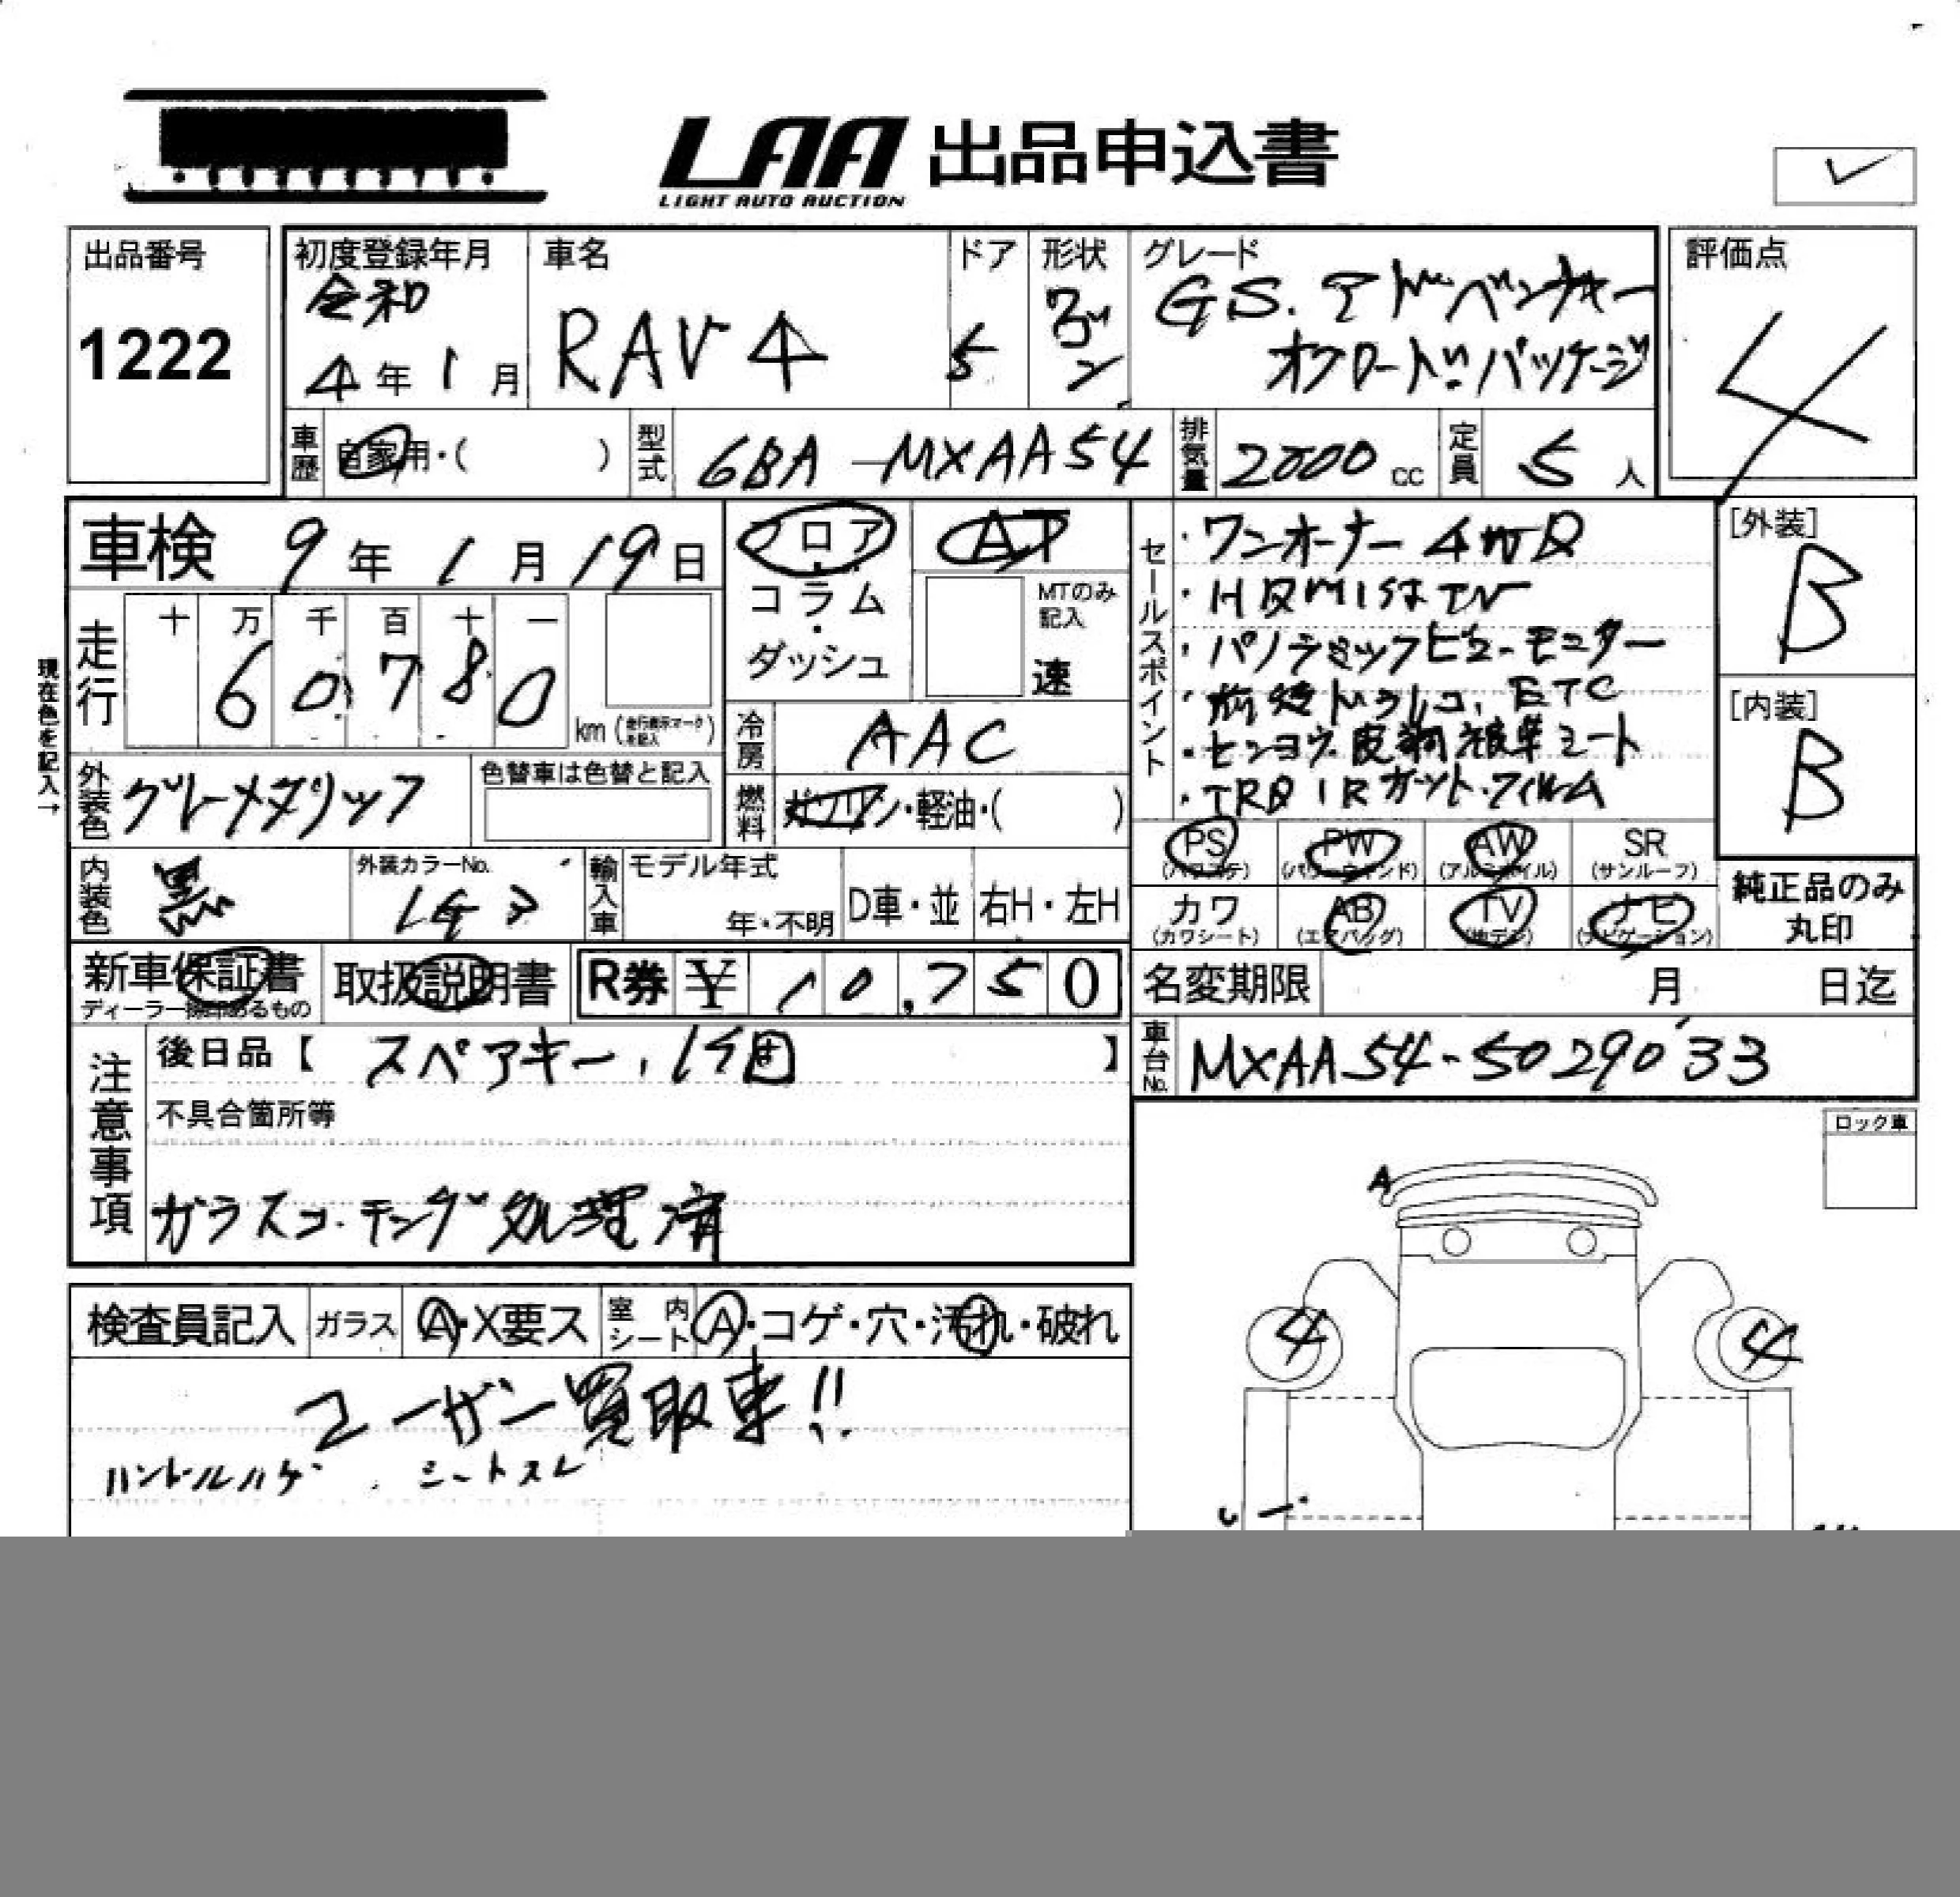 LAA 出品申込書
LIGHT AUTO AUCTION
出品番号
1222
初度登録年月
令和
4年 1月
車名
RAV4
ドア
5
形状
ワゴン
グレード
GS.アドベンチャー
オフロード.パッケージ
評価点
4
車歴
自家用・( )
型式
6BA-MXAA54
排気量
2000 cc
定員
5 人
車検 9年 1月 19日
フロア・コラム・ダッシュ
AT
MTのみ記入
速
セールスポイント
・ワンオーナー 4WD
・パノラミックビューモニター
・前後ドラレコ, ETC
・TRD IR カット・フィルム
[外装]
B
[内装]
B
走行
十 万 千 百 十 一
6 0 7 8 0
km (走行表示マークを記入)
現在色を記入→
冷房
AAC
外装色
グレーメタリック
色替車は色替と記入
燃料
ガソリン・軽油・( )
内装色
黒
外装カラーNo.
輸入車
モデル年式
年・不明
D車・並
右H・左H
PS
(パワステ)
PW
(パワーウインド)
AW
(アルミホイル)
SR
(サンルーフ)
カワ
(カワシート)
AB
(エアバッグ)
TV
(地デジ)
ナビ
(ナビゲーション)
純正品のみ
丸印
新車保証書
ディーラー捺印あるもの
取扱説明書
R券 ¥ 10,750
名変期限 月 日迄
車台No.
MXAA54-5029033
注意事項
後日品【 スペアキー, 1個 】
不具合箇所等
ガラスコーテング処理済
ロック車
A
4
4
検査員記入
ガラス
A・X要ス
室内シート
A・コゲ・穴・汚れ・破れ
ユーザー買取車!!
ハンドルハゲ シートスレ